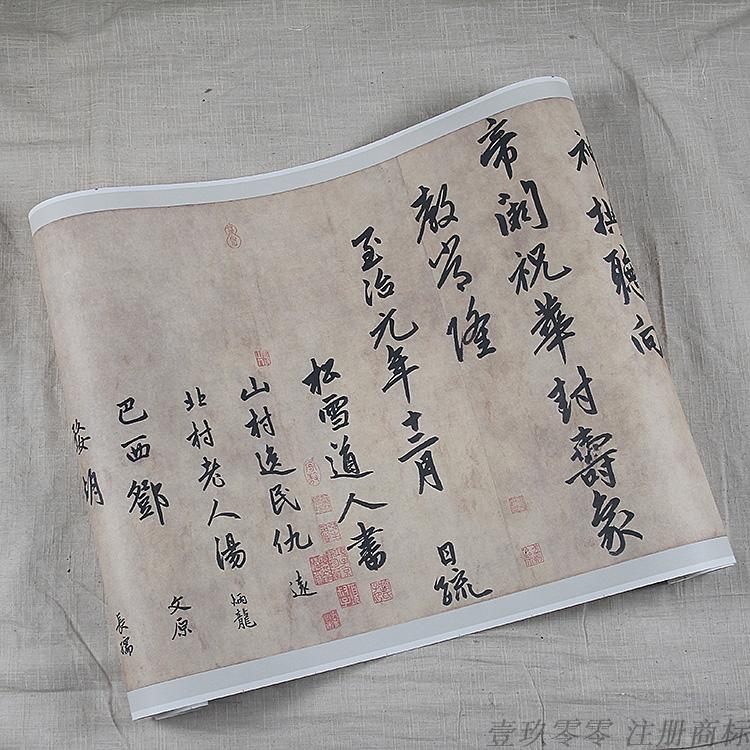 神拱聽向
帝闕祝華封壽象
教常隆
至治元年十二月日疏
松雪道人書
山村逸民仇遠
北村老人湯炳龍
巴西鄧文原
長孺
壹玖零零 注册商标